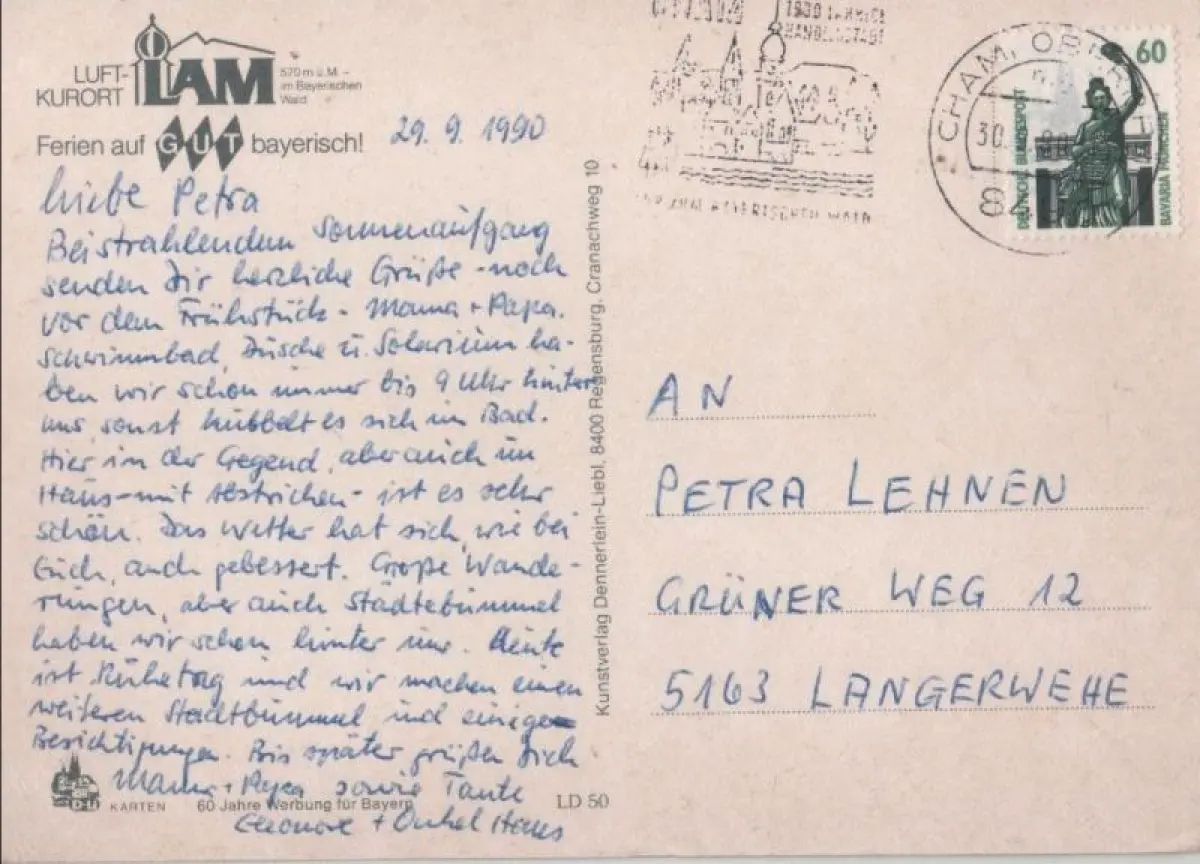 LUFT-
KURORT
LAM
570 m ü.M. –
im Bayerischen
Wald
Ferien auf GUT bayerisch!
29. 9. 1990
Liebe Petra
Bei strahlendem Sonnenaufgang
senden Dir herzliche Grüße - noch
vor dem Frühstück - Mama + Papa.
Schwimmbad, Dusche u. Solarium ha-
ben wir schon immer bis 9 Uhr hinter
uns, sonst knubbelt es sich im Bad.
Hier in der Gegend, aber auch im
Haus - mit Abstrichen - ist es sehr
schön. Das Wetter hat sich, wie bei
Euch, auch gebessert. Große Wande-
rungen, aber auch Städtebummel
haben wir schon hinter uns. Heute
ist Ruhetag und wir machen einen
weiteren Stadtbummel und einige
Besichtigungen. Bis später grüßen Dich
Mama + Papa sowie Tante
Eleonore + Onkel Hans
KARTEN
60 Jahre Werbung für Bayern
LD 50
Kunstverlag Dennerlein-Liebl, 8400 Regensburg, Cranachweg 10
HANDELSSTADT
ZUM BAYERISCHEN WALD
CHAM, OBERPF
30
8
60
DEUTSCHE BUNDESPOST
BAVARIA MÜNCHEN
AN
PETRA LEHNEN
GRÜNER WEG 12
5163 LANGERWEHE